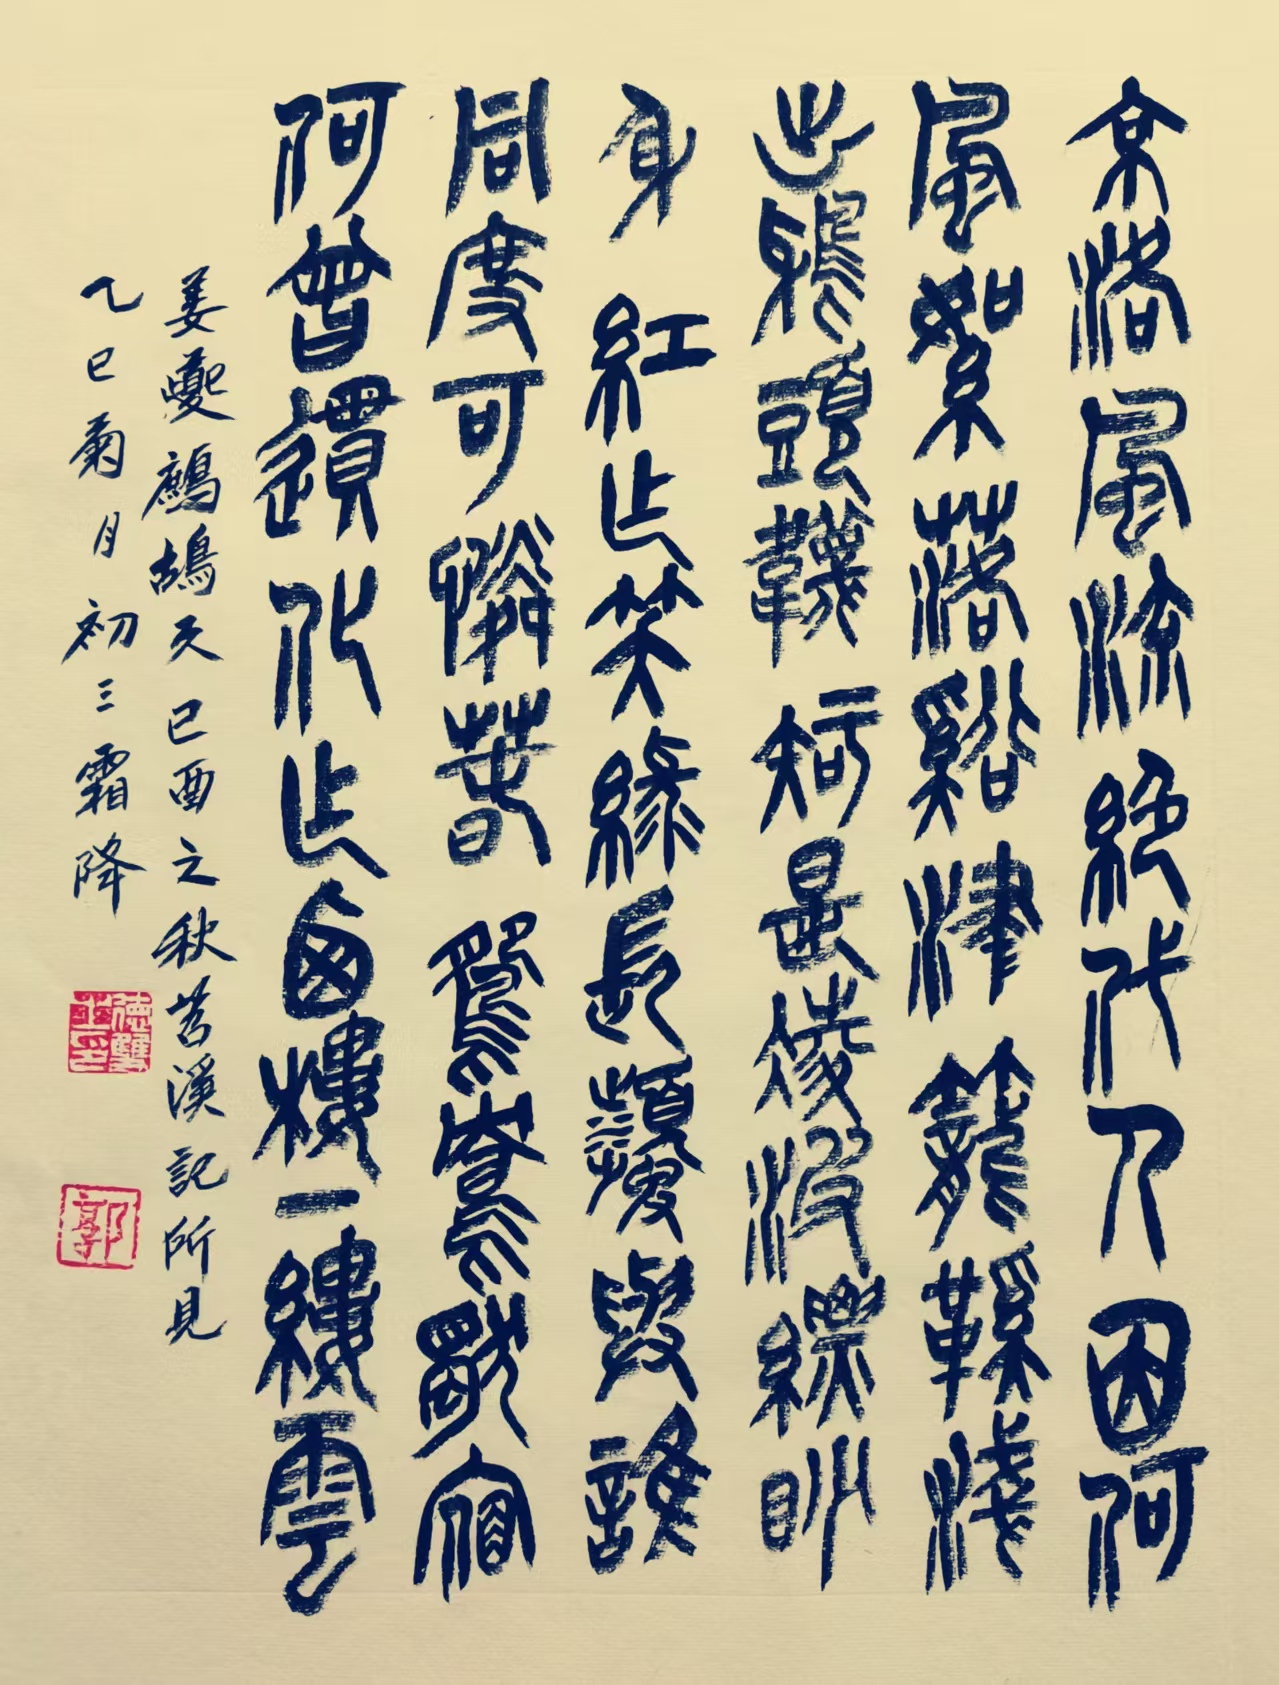 京洛風流絕代人因何
風絮落谿津籠鞵淺
出鴉頭韈知是倰波縹眇
身紅乍笑綠長顰與誰
同度可憐春鴛鴦獨宿
何曾遦化乍西樓一縷雲
姜夔鷓鴣天己酉之秋苕溪記所見
乙巳菊月初三霜降
德雙之印
郭